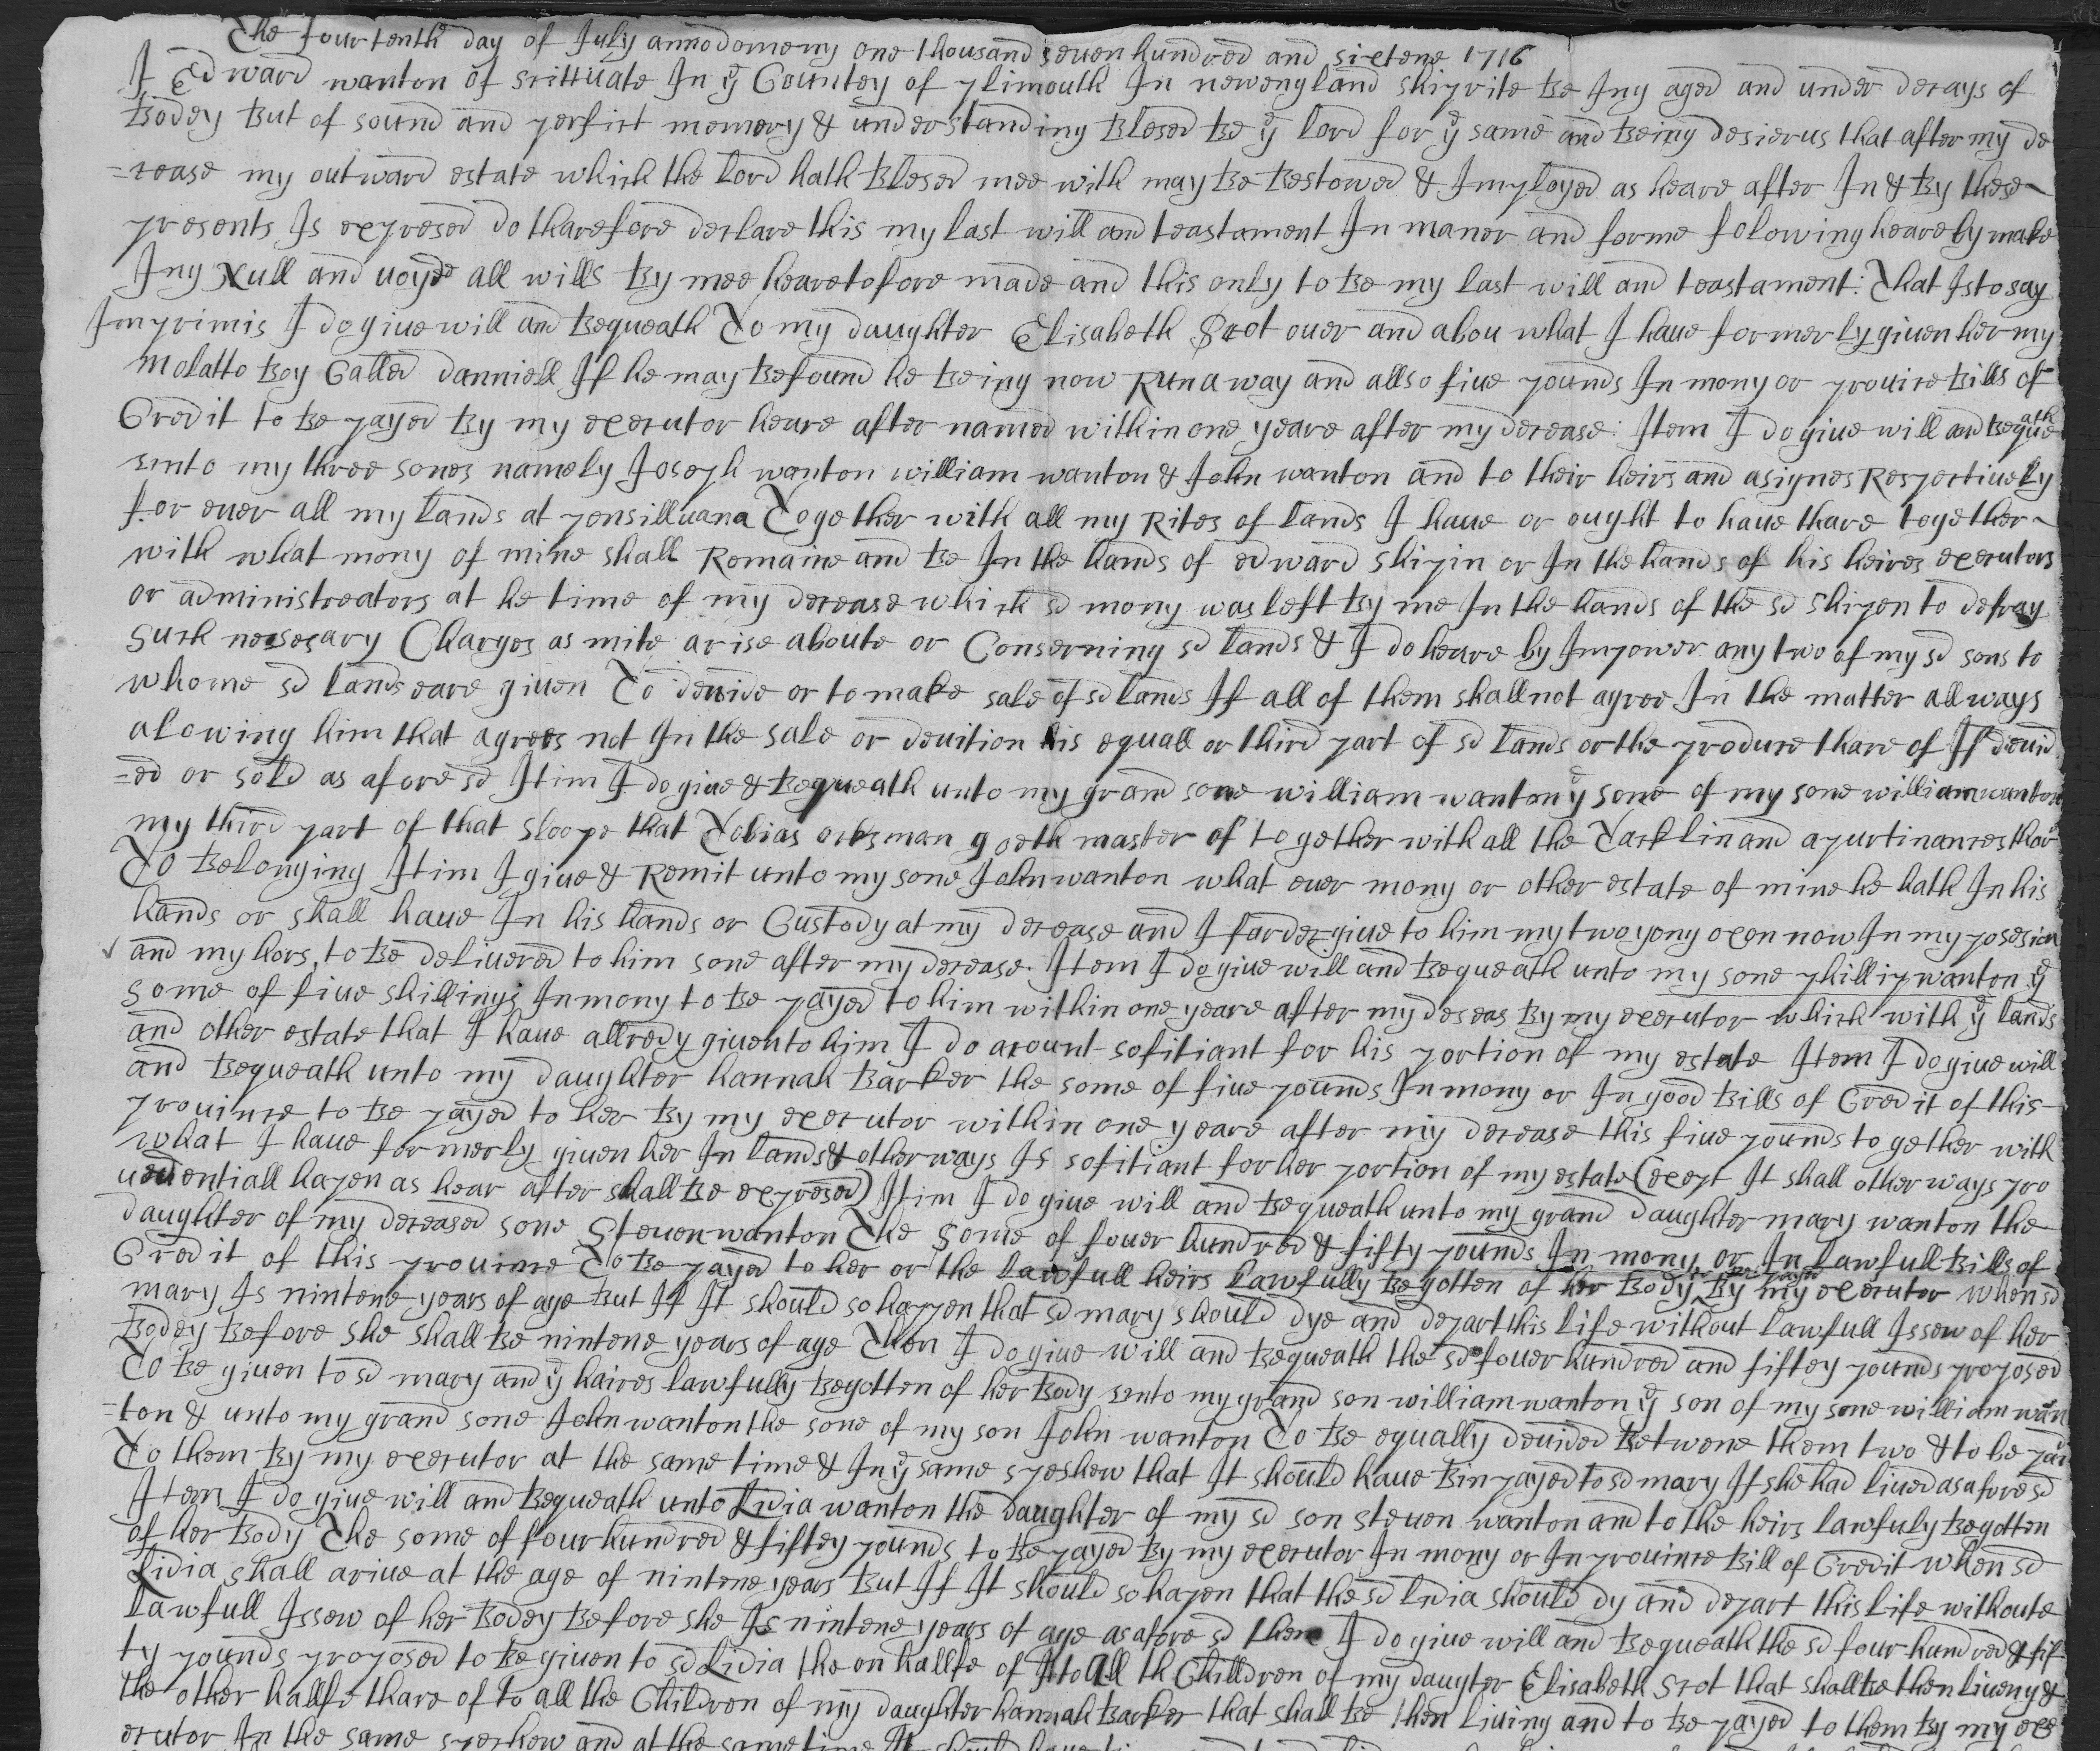 The fourtenth day of July annodomeny one thousand seuen hundred and sixtene 1716
I Edward wanton of scittuate In ye Countey of plimouth In newengland shiprite be Ing aged and under decays of
bodey but of sound and perfict memory & understanding blesed be ye lord for ye same and being desierus that after my de
=cease my outward estate which the lord hath blesed mee with may be bestowed & Imployed as heare after In & by these
presents Is expresed do tharefore declare this my last will and teastament In maner and forme folowing heareby make
Ing Null and uoyde all wills by mee hearetofore made and this only to be my last will and teastament: That Is to say
Imprimis I do giue will and bequeath To my daughter Elisabeth Scot ouer and abou what I haue formerly giuen her my
molatto boy Called danniell If he may be found he being now Run away and allso fiue pounds In mony or prouice bills of
Credit to be payed by my executor heare after named within one yeare after my decease: Item I do giue will and bequeath
unto my three sones namely Joseph wanton william wanton & John wanton and to their heirs and asignes Respectiuely
for euer all my lands at pensilluana Together with all my Rites of lands I haue or ought to haue thare together
with what mony of mine shall Remaine and be In the hands of edward shipin or In the hands of his heires executors
or administreators at he time of my decease which sd mony was left by me In the hands of the sd shipen to defray
such nesesary Charges as mite arise aboute or Conserning sd lands & I do heare by Impower any two of my sd sons to
whome sd lands eare giuen To deuide or to make sale of sd lands If all of them shall not agree In the matter allways
alowing him that agrees not In the sale or deuition his equall or third part of sd lands or the produce thare of If deuid
=ed or sold as afore sd Itim I do giue & bequeath unto my grand sone william wanton ye sone of my sone william wanton
my third part of that sloope that Tobias ocksman goeth master of together with all the Tacklin and apurtinances thar
To belonging Itim I giue & Remit unto my sone John wanton what euer mony or other estate of mine he hath In his
hands or shall haue In his hands or Custody at my decease and I farder giue to him my two yong oxen now In my posesion
and my hors, to be deliuered to him sone after my decease. Item I do giue will and bequeath unto my sone phillip wanton ye
some of fiue shillings In mony to be payed to him within one yeare after my deseas by my executor which with ye lands
and other estate that I haue allredy giuen to him I do acount sofitiant for his portion of my estate Item I do giue will
and bequeath unto my daughter hannah barker the some of fiue pounds In mony or In good bills of Credit of this
prouince to be payed to her by my executor within one yeare after my decease this fiue pounds together with
what I haue formerly giuen her In lands & otherways Is sofitiant for her portion of my estate (exept It shall other ways pro
uedentiall hapen as hear after shall be expresed) Itim I do giue will and bequeath unto my grand daughter mary wanton the
daughter of my deceased sone Steuen wanton The Some of fouer hundred & fifty pounds In mony or In lawfull bills of
Credit of this prouince To be payed to her or the lawfull heirs lawfully begotten of her body by my executor when sd
mary Is nintene years of age but If It should so hapen that sd mary should dye and depart this life without lawfull Issew of her
bodey before she shall be nintene years of age Then I do giue will and bequeath the sd fouer hundred and fiftey pounds proposed
To be giuen to sd mary and ye haires lawfully begotten of her body unto my grand son william wanton ye son of my sone william wan
=ton & unto my grand sone John wanton the sone of my son John wanton To be equally deuided betwene them two & to be paid
To them by my executor at the same time & In ye same speshew that It should haue bin payed to sd mary If she had liued as afore sd
Item I do giue will and bequeath unto Lidia wanton the daughter of my sd son steuen wanton and to the heirs lawfuly begotten
of her body The some of four hundred & fiftey pounds to be payed by my executor In mony or In prouince bill of Credit when sd
Lidia shall ariue at the age of nintene years but If It should so hapen that the sd Lidia should dy and depart this life withoute
lawfull Issew of her bodey before she Is nintene years of age as afore sd then I do giue will and bequeath the sd four hundred & fif
ty pounds proposed to be giuen to sd Lidia the on hallfe of It to all th Chilldren of my daugter Elisabeth Scot that shall be then liueng &
the other hallfe thare of to all the Children of my daughter hannah barker that shall be then liuing and to be payed to them by my exe
ecutor In the same speshew and at the same time It should haue